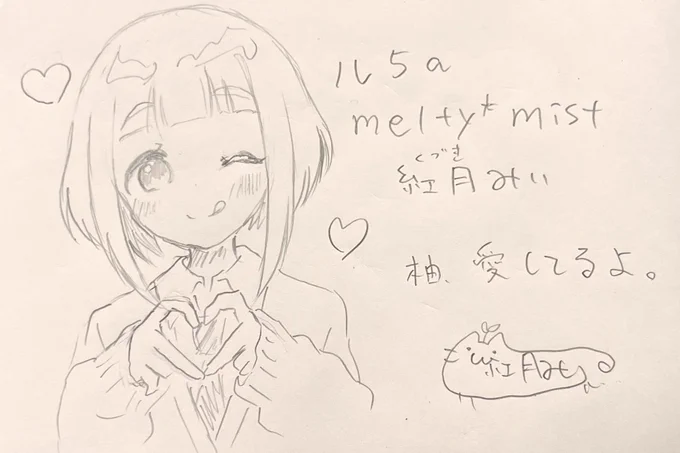 ル5a
melty* mist
くづき
紅月みい
柚、愛してるよ。
紅月みぃ